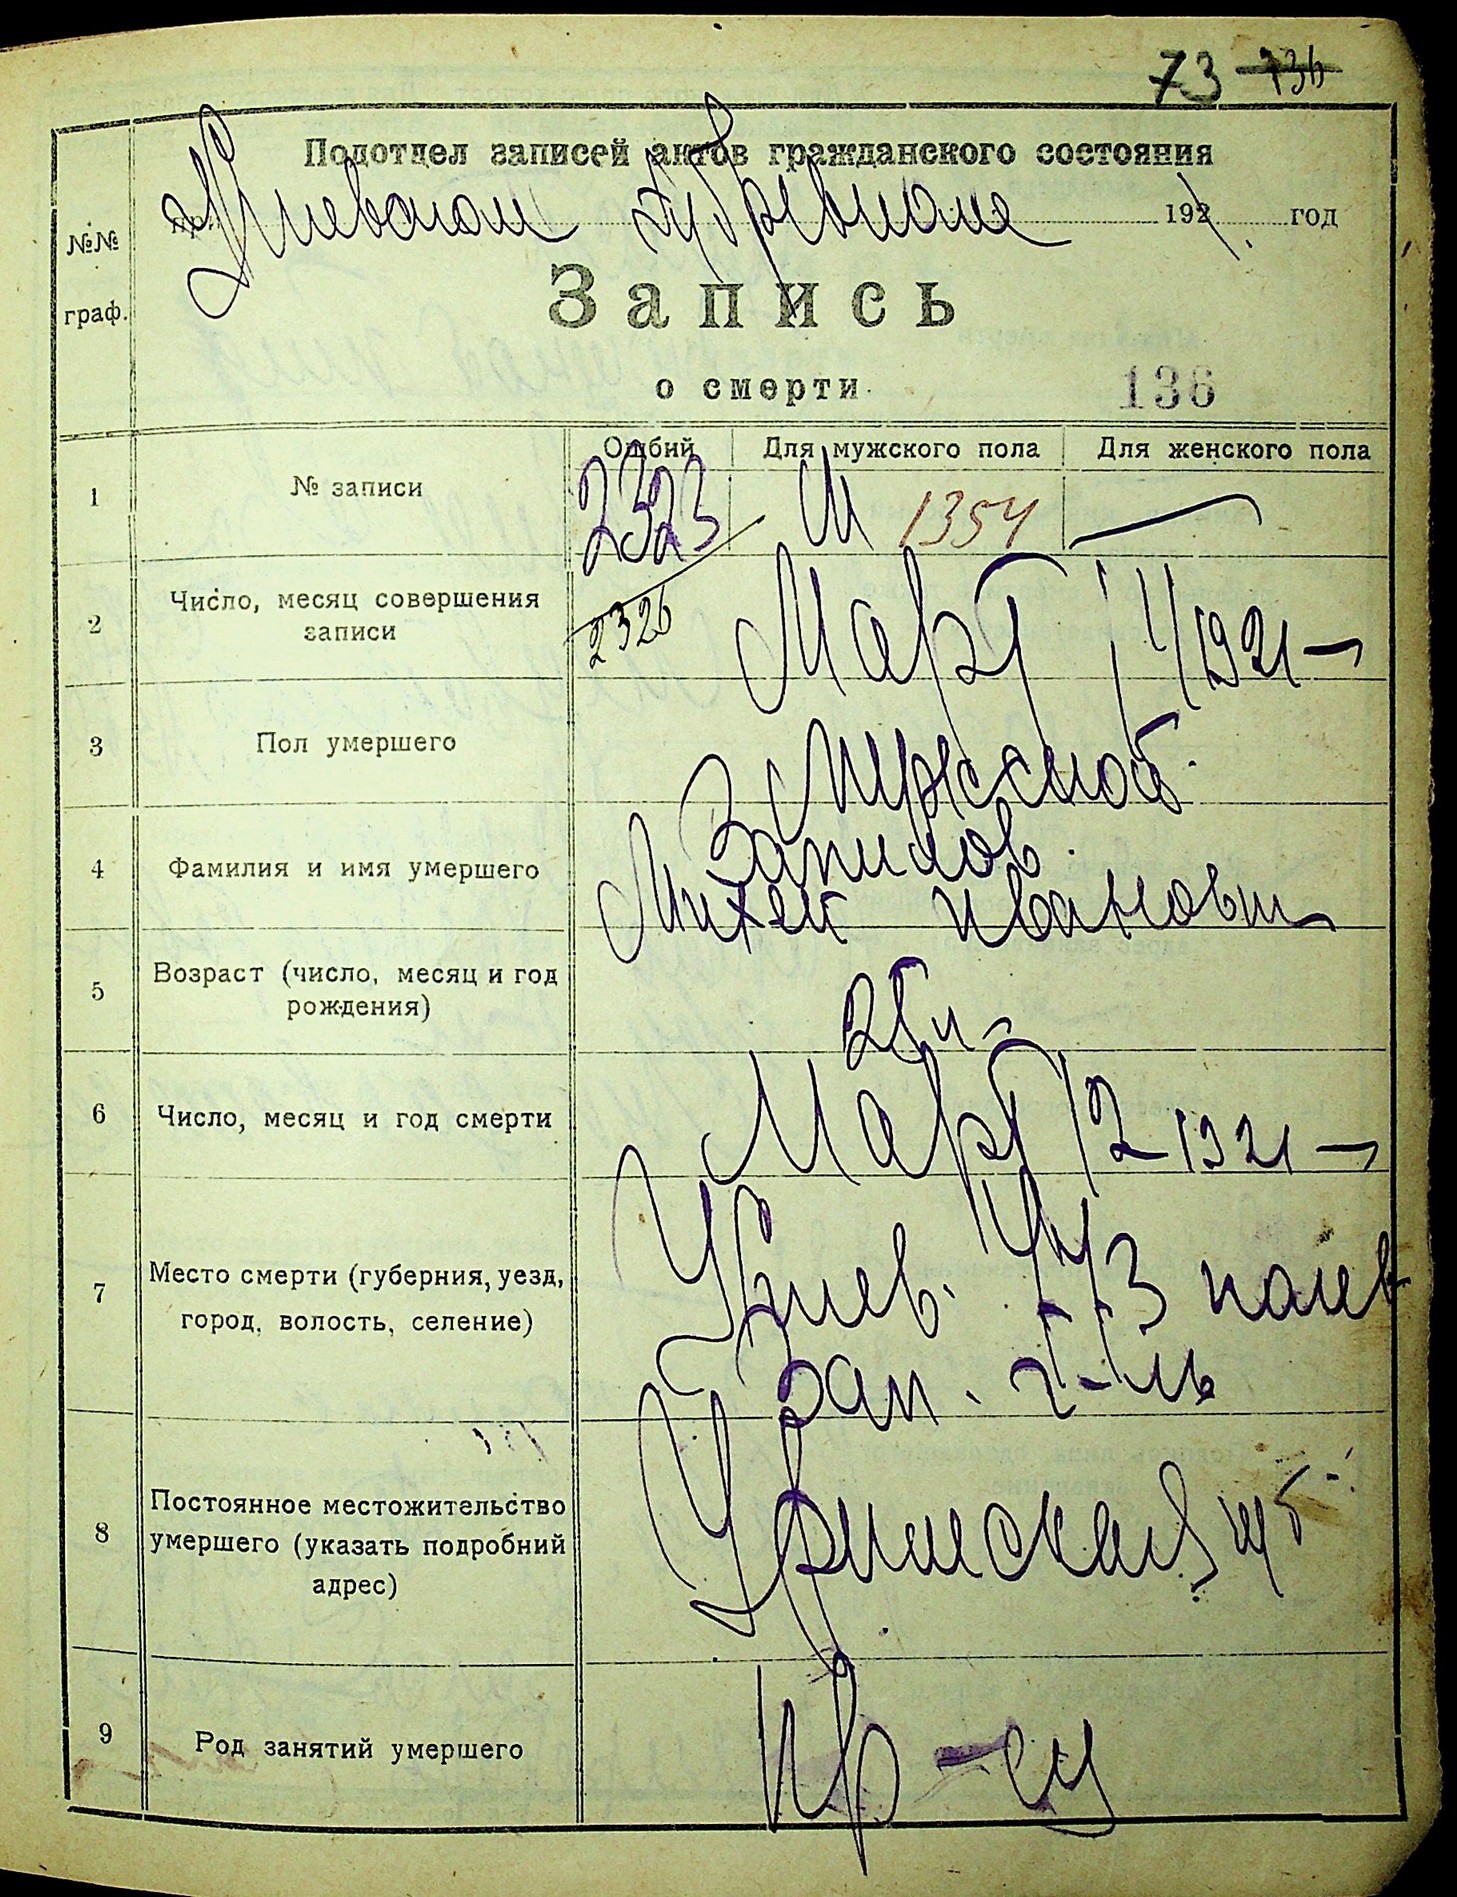 73 136
Подотдел записей актов гражданского состояния
при Киевском Губревкоме 1921. год
№№
граф.
Запись
о смерти
136
Ощбий Для мужского пола Для женского пола
1 № записи 2323 М 1354 —
2326
2 Число, месяц совершения
записи
Март 14 1921 —
3 Пол умершего Мужской
4 Фамилия и имя умершего
Иванович
5 Возраст (число, месяц и год
рождения)
6 Число, месяц и год смерти Март 12 1921 —
7 Место смерти (губерния, уезд,
город, волость, селение)
Киев. 443 полев
Зап. г-ль
8 Постоянное местожительство
умершего (указать подробний
адрес)
9 Род занятий умершего кр-ец